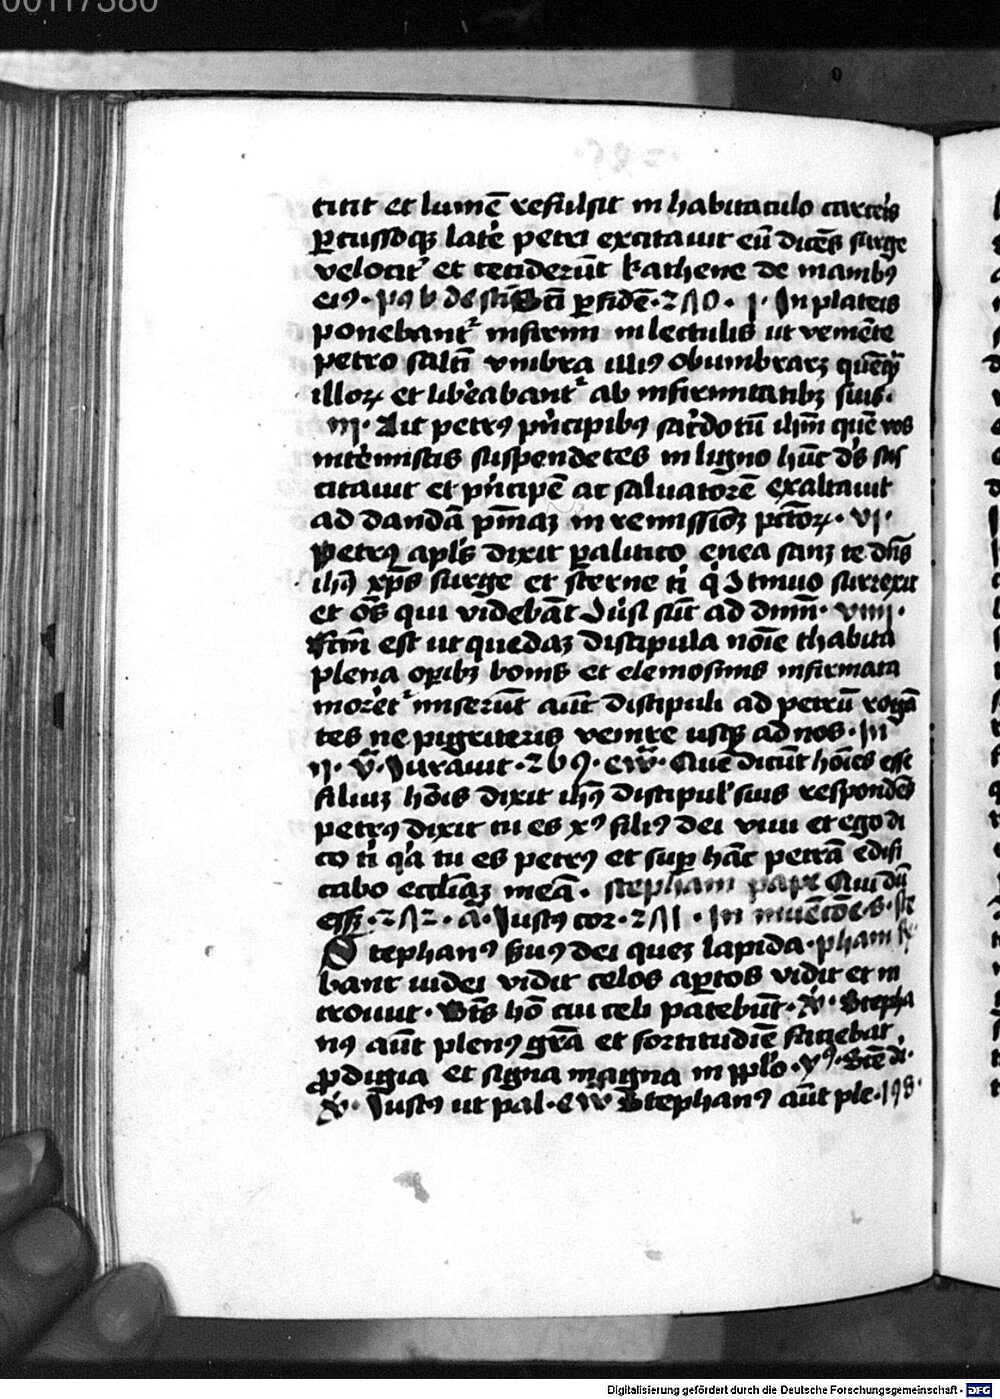 00117380
titit et lumē refulsit in habitaculo carceris
ꝑcussoqꝫ lateꝛe petri excitauit eū dicēs surge
velocitʼ et ceciderūt kathene de manibꝰ
eiꝰ · ꝑ fidē · 2 ·I· In plateis
ponebantʳ infirmi in lectulis ut veniēte
petro saltī vmbra illiꝰ obumbraꝛꝫ quēqꝫ
illoꝝ et libeꝛabantʳ ab infirmitatibꝫ suis ·
III · Ait petrꝰ pꝛincipibꝰ saceꝛdotū ihm̄ quē vos
inteꝛmistis suspendetes in ligno hūc dꝰs sus
citauit et pꝛincipē ac saluatoꝛē exaltauit
ad dandā pn̄iaꝫ in remissioꝫ pctōꝝ · VI ·
Petrꝰ apls̄ dixit paꝛalitico enea sanꝫ te dn̄s
ihū xp̄s surge et sterne ti q̇ 9tinuo surrexit
et oēs qui videbāt 9ūsi sūt ad dnm̄ · VIIII ·
Fcm̄ est ut quedaꝫ discipula noīe thabita
plena oꝑibꝫ bonis et elemosinis infirmata
moꝛeꝛetʳ miserūt aūt discipuli ad petrū rogā
tes ne pigriteris venire usqꝫ ad nos · In
II · V̄ · Iurauit · 269 · eẇ · Quē dicūt hoīes esse
filiuꝫ hoīs dixit ihū discipulʼ suis respondēs
petrꝰ dixit tu es xꝰ filiꝰ dei viui et ego di
co ti qꝛa tu es petrꝰ et suꝑ hāc petrā edifi
cabo ecclīaꝫ meā · stephani pape Qui dū
eēꝫ · Iustꝰ cor · In inuēcōe s · ste
Stephanꝰ ẜuꝰ dei queꝫ lapida · phani
bant iudei vidit celos aꝑtos vidit et in
troiuit · Btūs hō cui celi patebūt · V̄ · Stepha
nꝰ aūt plenꝰ grā et fortitudīe faciebat
ꝓdigia et signa magna in pplo · yꝰ · Stē di ·
V̄ · Iustꝰ ut pal · eẇ Stephanꝰ aūt ple · 198 ·
Digitalisierung gefördert durch die Deutsche Forschungsgemeinschaft - DFG